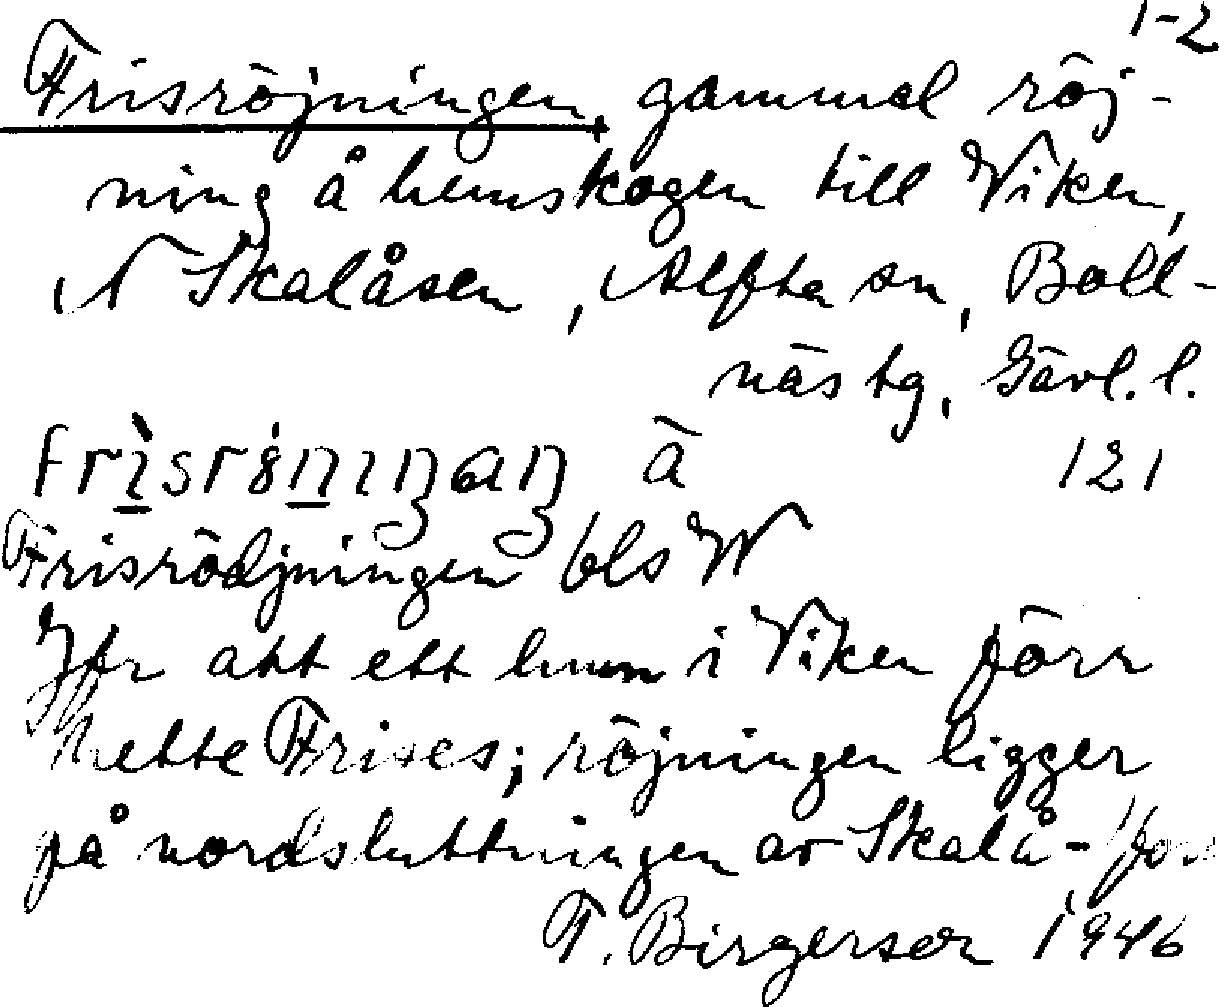 1-2
Frisröjningen, gammal röj-
ning å hemskogen till Viken,
N Skalåsen, Alfta sn, Boll-
näs tg, Gävl. l.
121
Frisrödjningen bls W
Jfr att ett hem i Viken förr
hette Frises; röjningen ligger
på nordsluttningen av Skalå-
T. Birgerson 1946